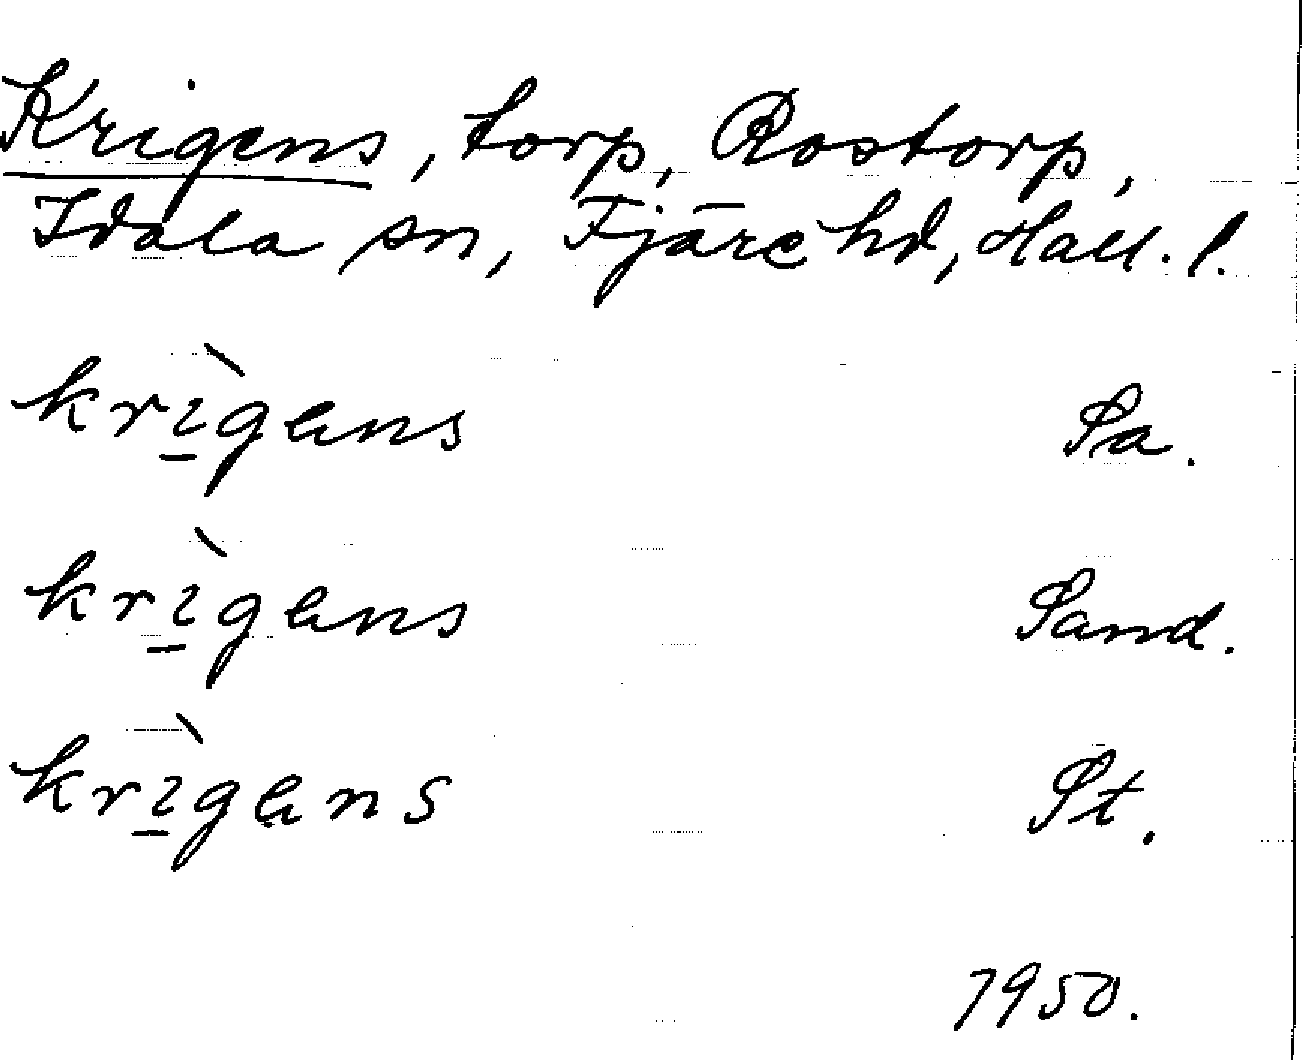 Krigens, torp, Rostorp,
Idala sn, Fjäre hd, Hall. l.
krı̱̀gens Sa.
krı̱̀gens Sand.
krı̱̀gens St.
1950.